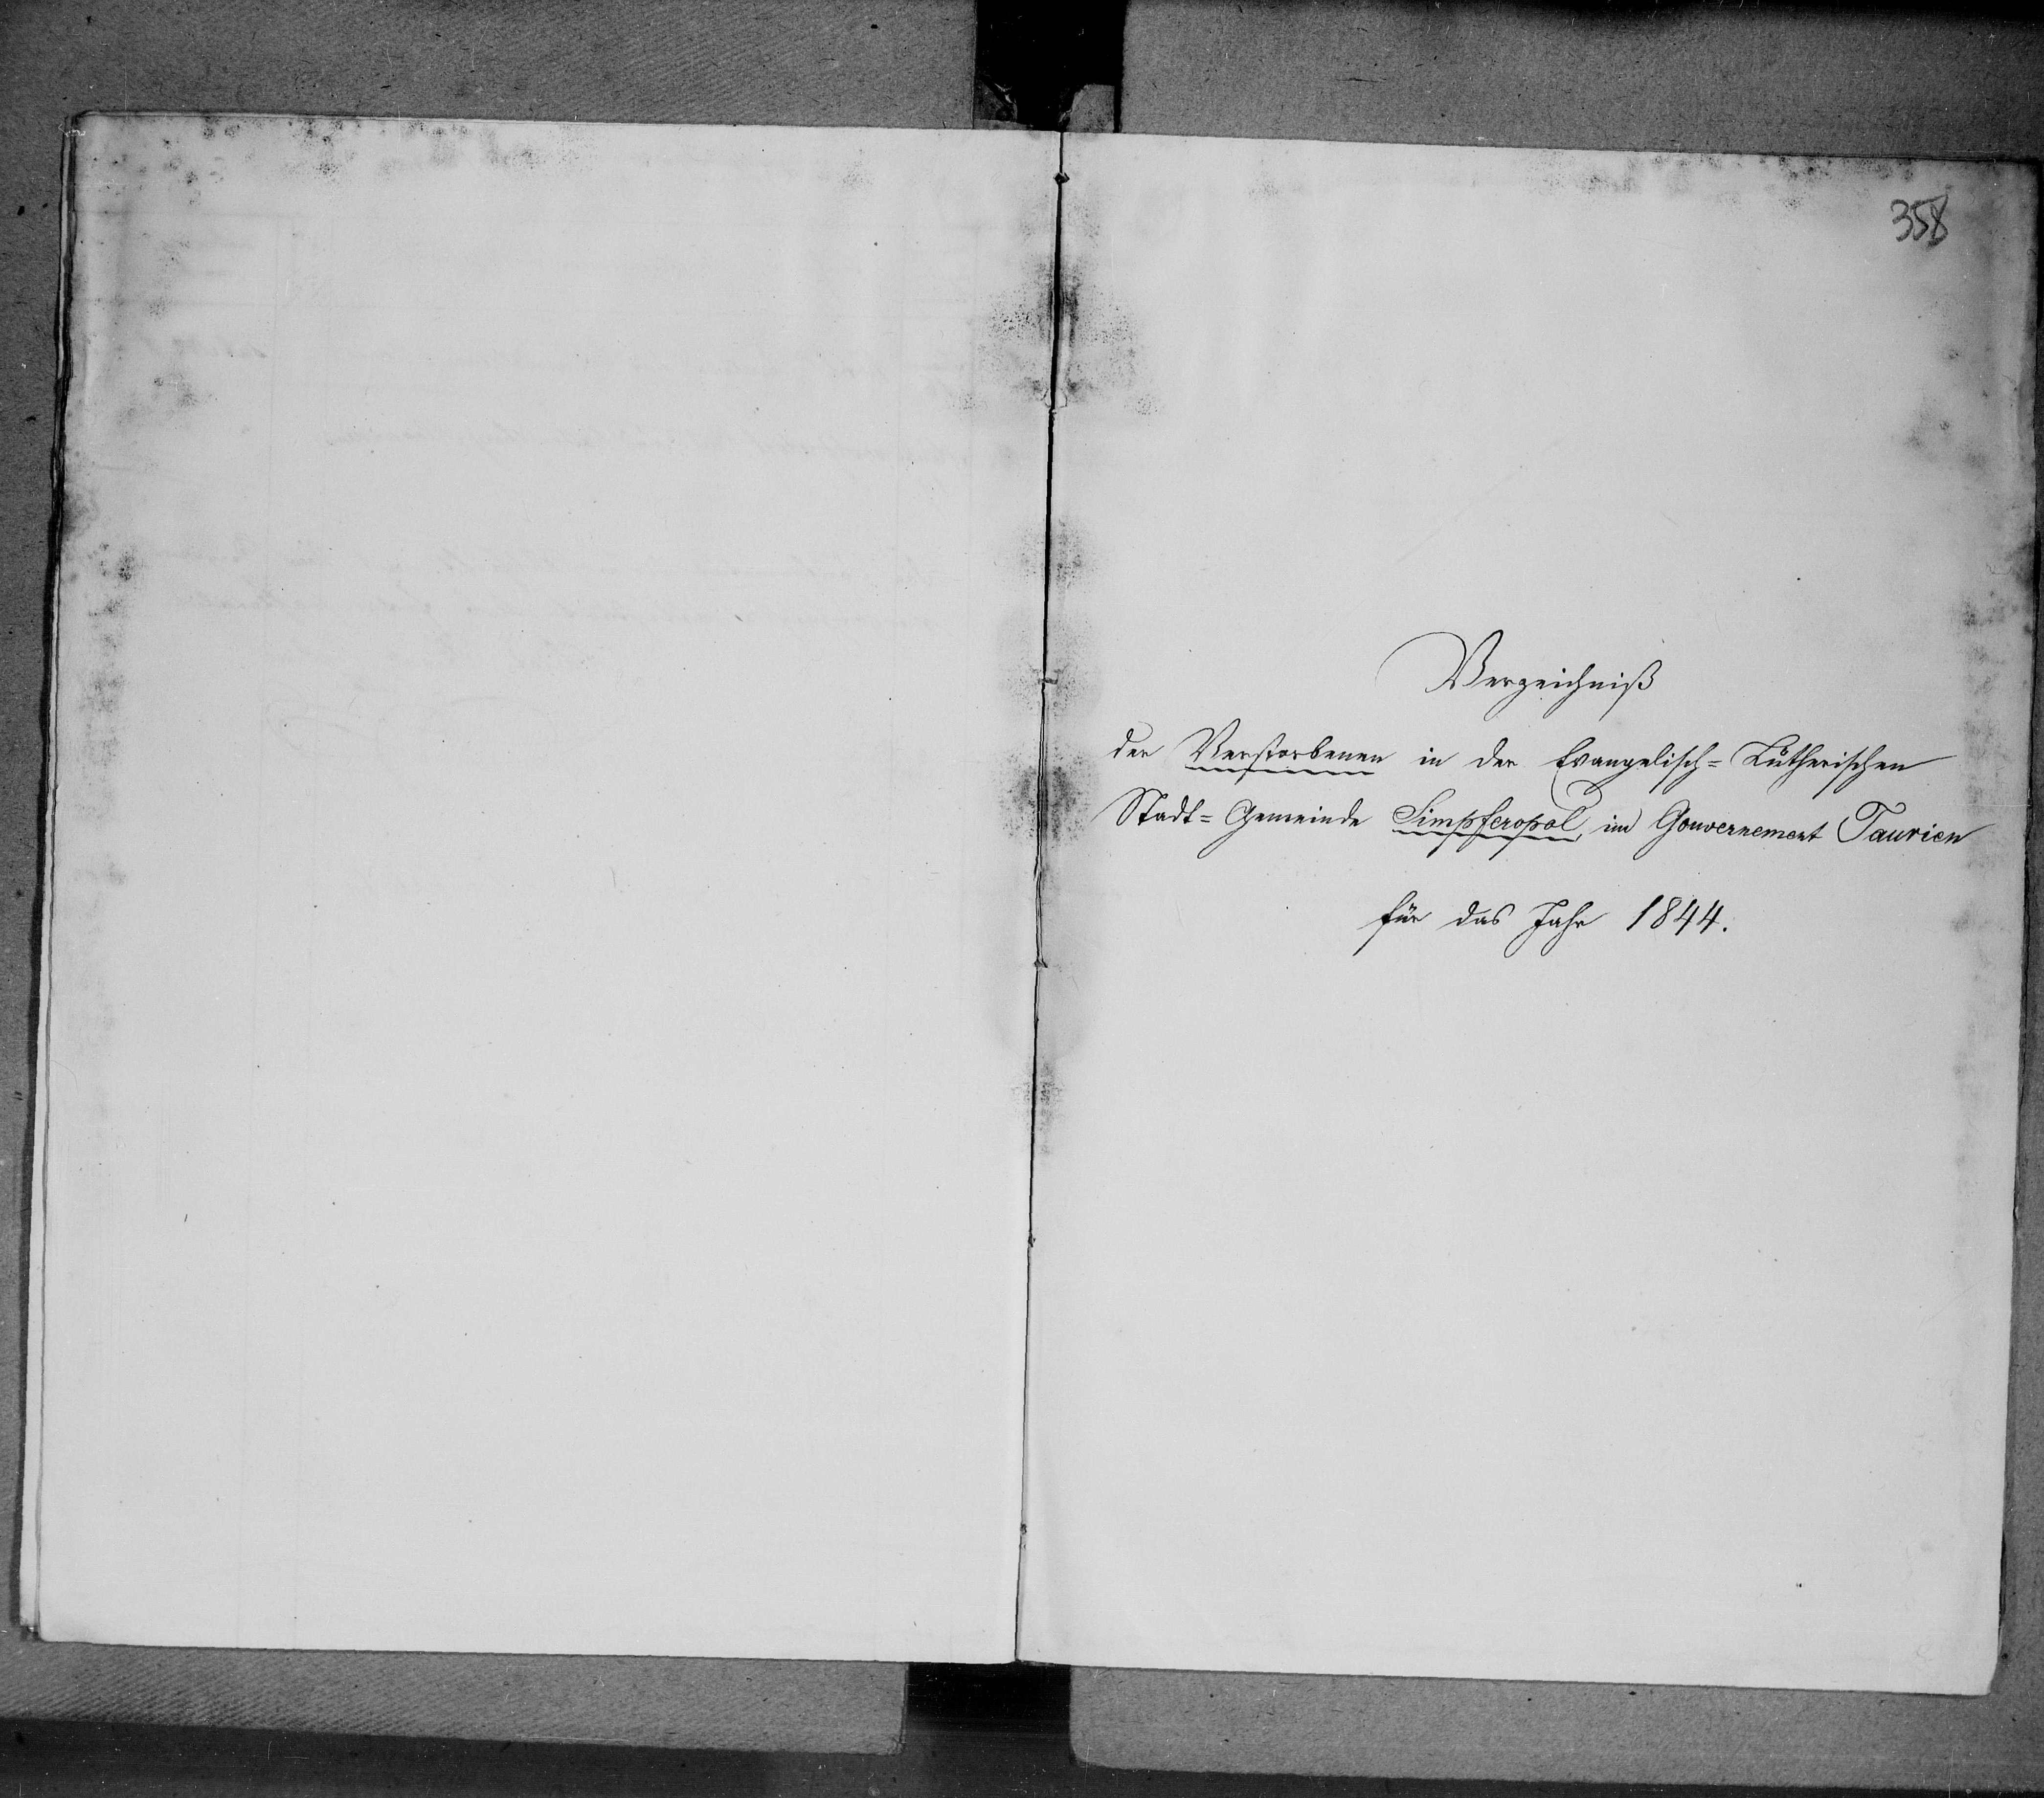 358
Verzeichniß
der Verstorbenen in der Evangelisch=Lutherischen
Stadt=Gemeinde Simpferopol, im Gouvernement Taurien
für das Jahr 1844.